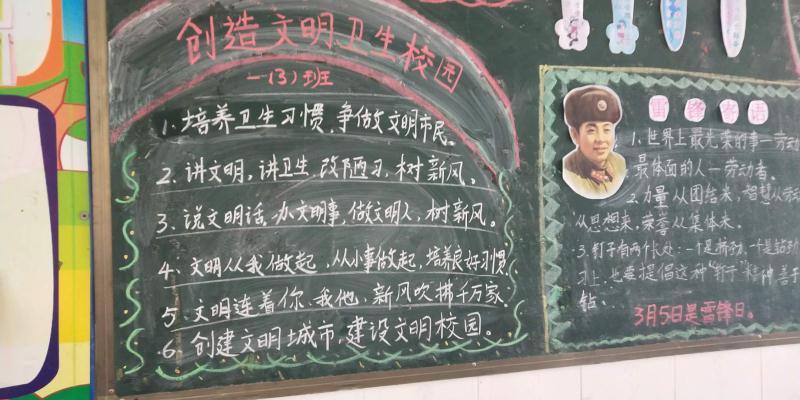 创造文明卫生校园
一(3)班
1、培养卫生习惯,争做文明市民。
2、讲文明,讲卫生,改陋习,树新风。
3、说文明话,办文明事,做文明人,树新风。
4、文明从我做起,从小事做起,培养良好习惯
5、文明连着你、我他,新风吹拂千万家
6、创建文明城市,建设文明校园。
雷锋寄语
1、世界上最光荣的事一劳动
最体面的人一劳动者。
2、力量从团结来,智慧从劳动
从思想来,荣誉从集体来。
3、钉子有两个长处:一个是挤劲,一个是钻劲
习上,也要提倡这种"钉子"精神善于
钻、
3月5日是雷锋日。